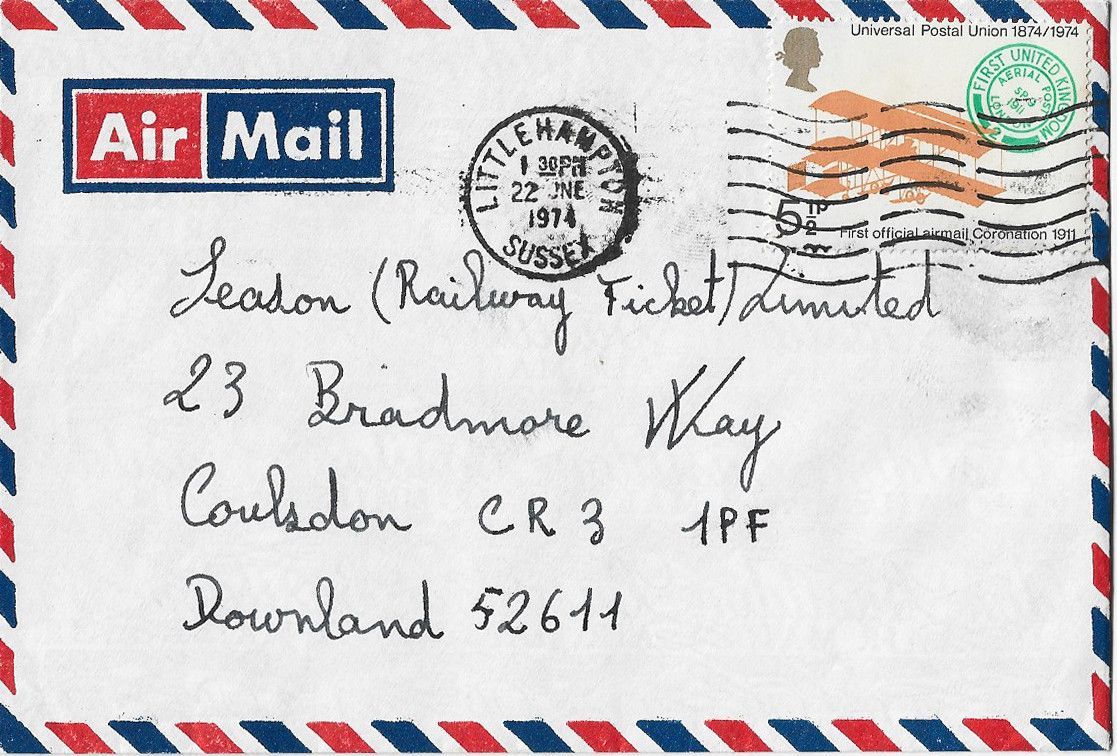 Universal Postal Union 1874/1974
FIRST UNITED KINGDOM
AERIAL POST
SP
1911
LONDON
2
5½P
First official airmail Coronation 1911
Air Mail
LITTLEHAMPTON
1 30PM
22 JNE
1974
SUSSEX
Season (Railway Ticket) Limited
23 Bradmore Way
Coulsdon CR3 1PF
Downland 52611